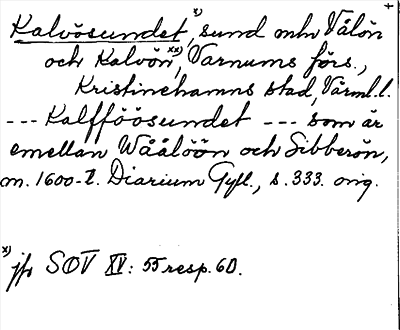 Kalvösundet, x) sund mln Vålön +
och Kalvön, xx) Varnums förs.,
Kristinehamns stad, Värml. l.
--- Kalfföösundet --- som är
emellan Wåålöön och Sibberön,
m. 1600-t. Diarium Gyll., s. 333. orig.
x) jfr SOV XV: 55 resp. 60.